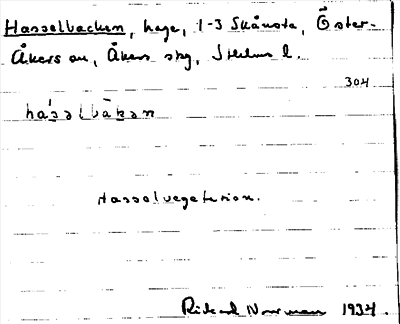 Hasselbacken, hage, 1-3 Skånsta, Öster-
Åkers sn, Åkers skg, Sthlms l.
304
hás̲əlbàk̲ən
Hasselvegetation.
Rickard Norrman 1934.